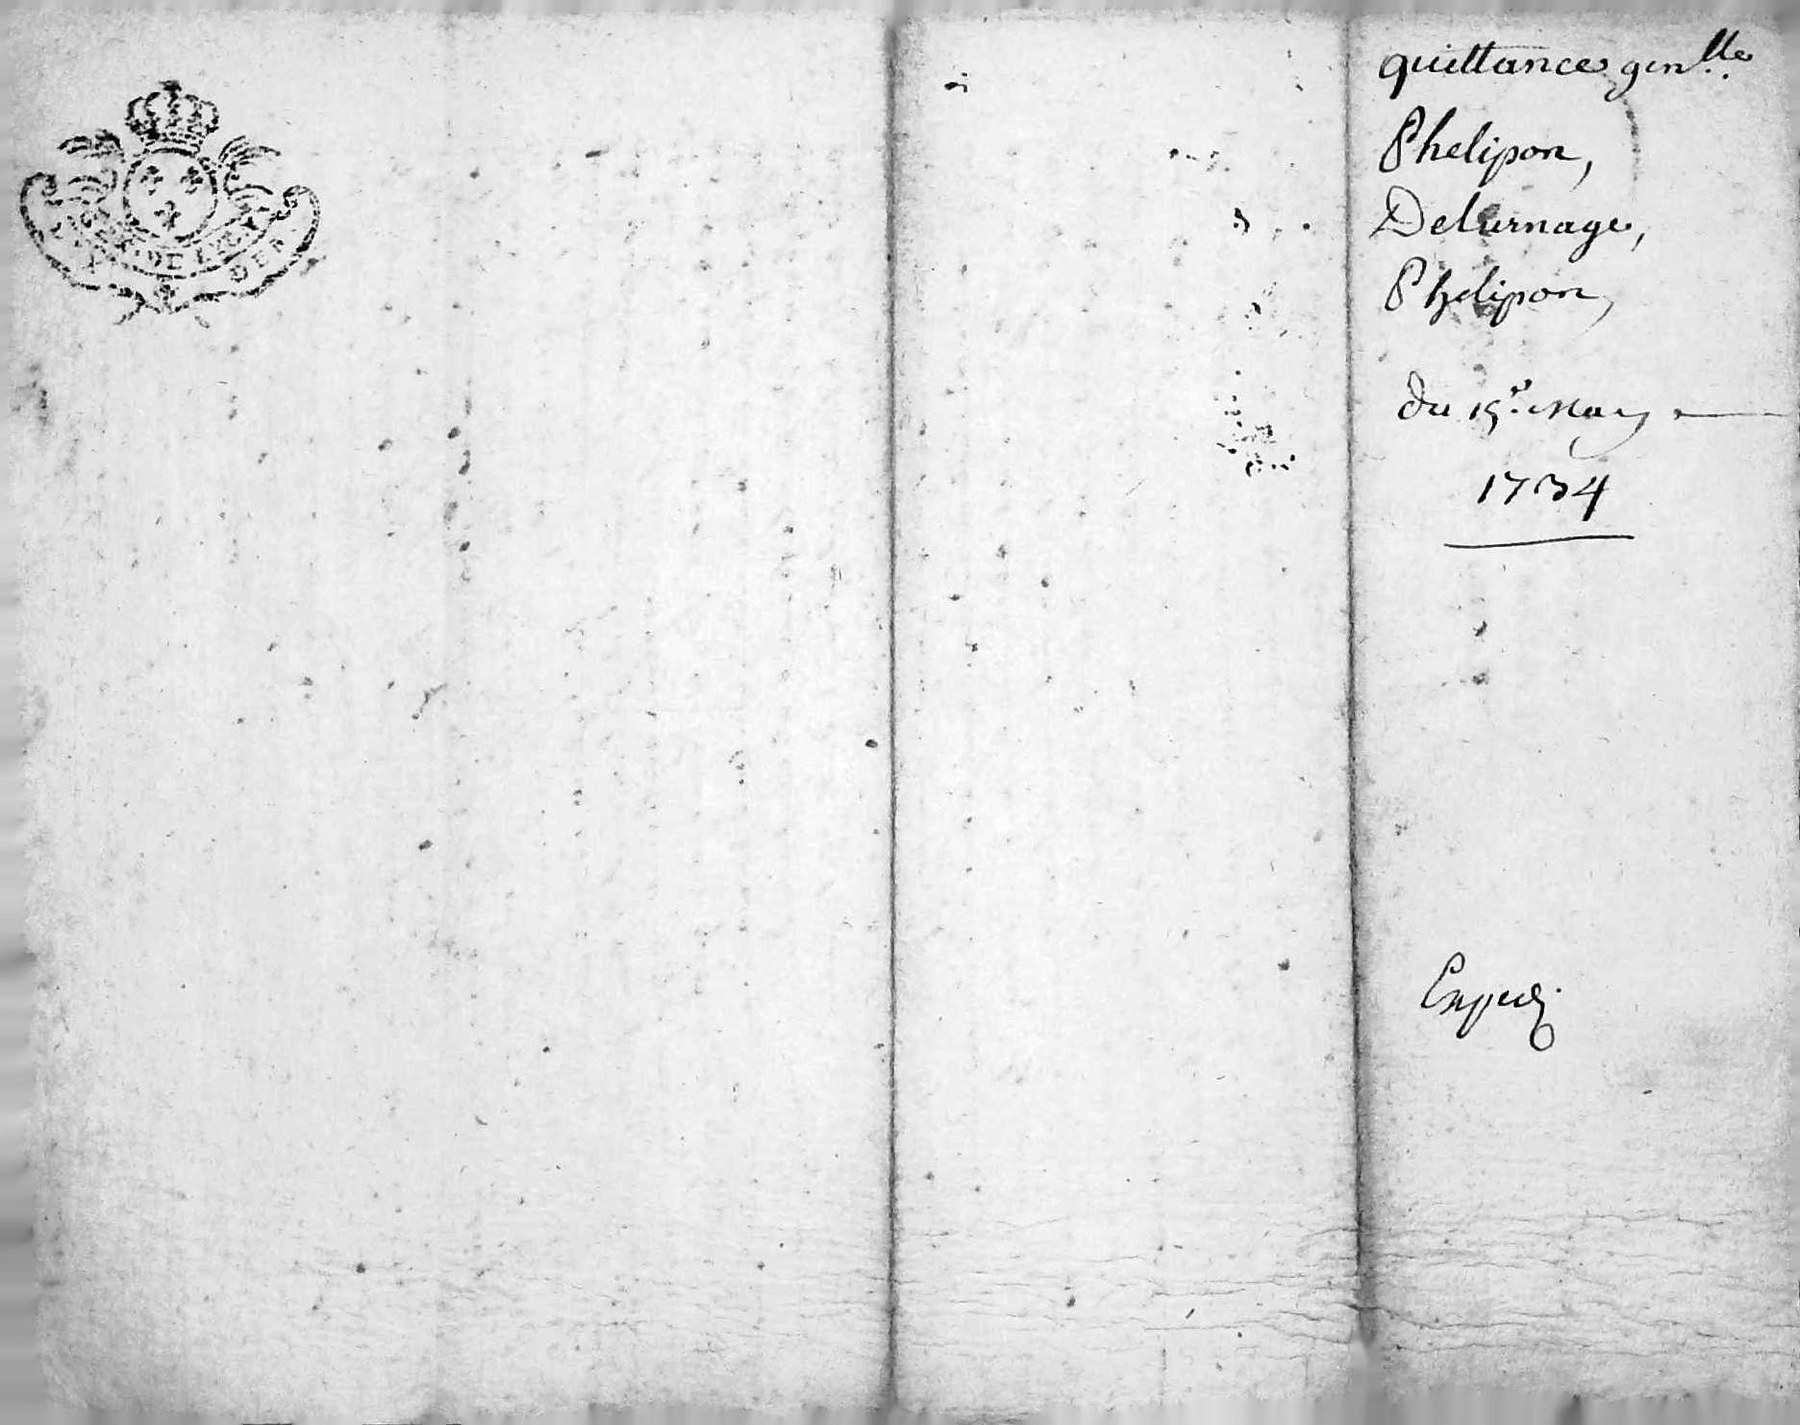 quittance gen.lle
Phelipon,
Delurnage,
Phelipon,
du 15.e May
1734
Expedi